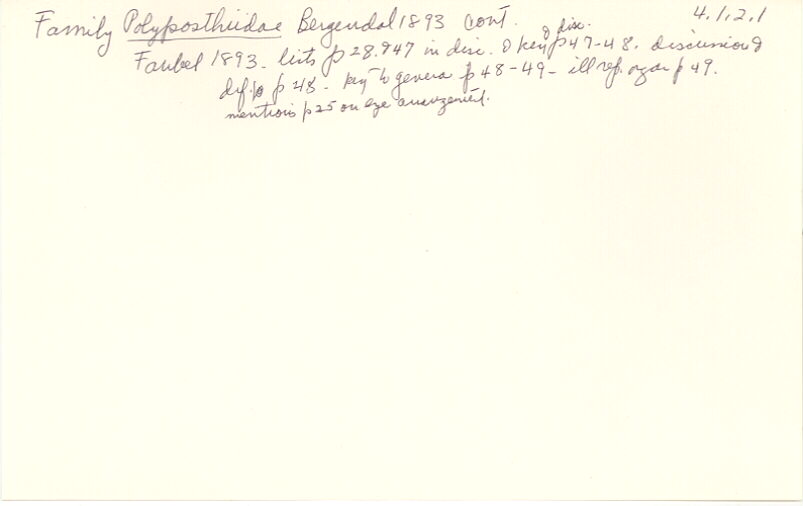 Family Polyposthiidae Bergendal 1893 cont. 4.1.2.1
& disc.
Faubel 1893 - lists p 28. & 47 in disc. & key p 47-48. discussion &
p 48 - key to genera p 48-49 - ill rep. organ p 49.
mentions p 25 on eye arrangement.